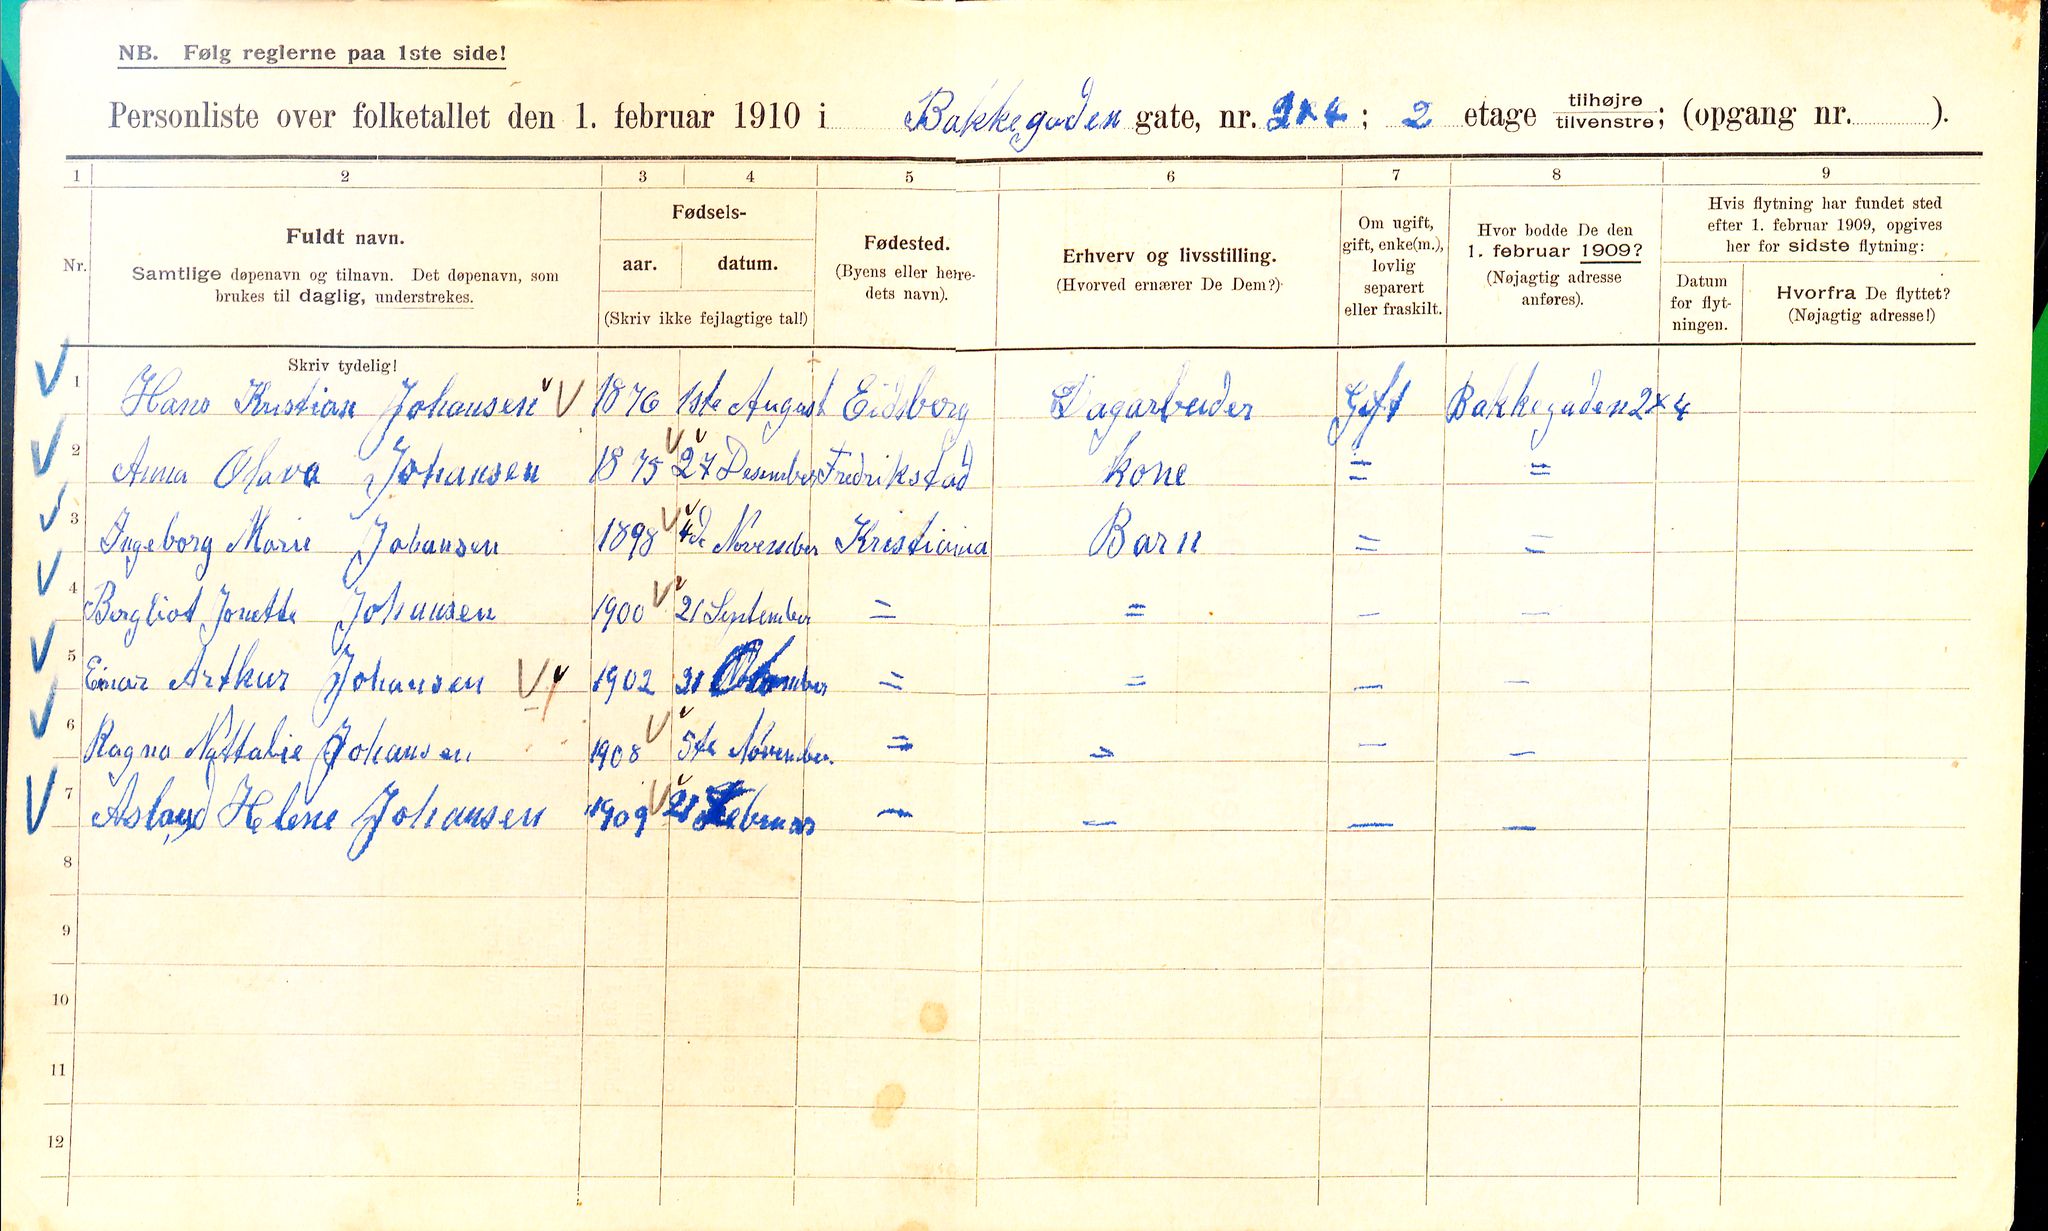 NB. Følg reglerne paa 1ste side!
Personliste over folketallet den 1. februar 1910 i Bakkegaden gate, nr. 2×4; 2 etage tilhøjre tilvenstre; (opgang nr. ).
1 2 3 4 5 6 7 8 9
Nr.
Fuldt navn.
Samtlige døpenavn og tilnavn. Det døpenavn, som
brukes til daglig, understrekes.
Fødsels-
aar. datum.
(Skriv ikke fejlagtige tal!)
Fødested.
(Byens eller herre-
dets navn).
Erhverv og livsstilling.
(Hvorved ernærer De Dem?)
Om ugift,
gift, enke(m.),
lovlig
separert
eller fraskilt.
Hvor bodde De den
1. februar 1909?
(Nøjagtig adresse
anføres).
Hvis flytning har fundet sted
efter 1. februar 1909, opgives
her for sidste flytning:
Datum
for flyt-
ningen.
Hvorfra De flyttet?
(Nøjagtig adresse!)
Skriv tydelig!
1 Hans Kristian Johansen 1876 1ste August Eidsberg Dagarbeider Gift Bakkegaden 2×4
2 Anna Olava Johansen 1875 27 Desember Fredrikstad kone = =
3 Ingeborg Marie Johansen 1898 4de November Kristiania Barn = =
4 Bergliot Jonette Johansen 1900 21 September = = — —
5 Einar Arthur Johansen 1902 21 = = — —
6 Ragna Nattalie Johansen 1908 5te November = = — —
7 Helene Johansen 1909 21 Februar — — — —
8
9
10
11
12